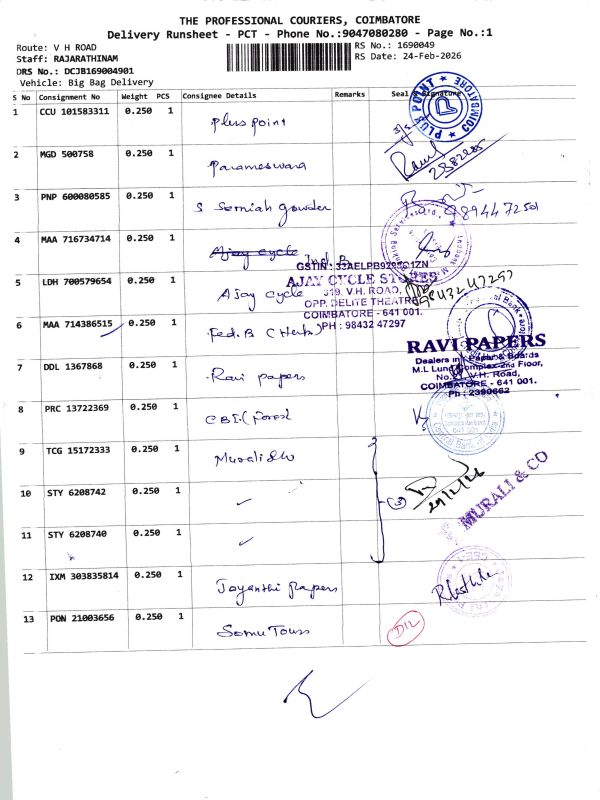 THE PROFESSIONAL COURIERS, COIMBATORE
Delivery Runsheet - PCT - Phone No.:9047080280 - Page No.:1
Route: V H ROAD
RS No.: 1690049
Staff: RAJARATHINAM
RS Date: 24-Feb-2026
DRS No.: DCJB169004901
Vehicle: Big Bag Delivery
S No Consignment No Weight PCS Consignee Details Remarks Seal & Signature
1 CCU 101583311 0.250 1 Plus point
PLUS POINT COIMBATORE
2 MGD 500758 0.250 1 Parameswara
3 PNP 600080585 0.250 1 S Semiah gowder
4 MAA 716734714 0.250 1 Ajay cycle Ind. B
GSTIN: 33AELPB9295C1ZN
5 LDH 700579654 0.250 1 Ajay cycle
AJAY CYCLE STORES
319, V.H. ROAD,
OPP. DELITE THEATRE
COIMBATORE - 641 001.
PH : 98432 47297
6 MAA 714386515 0.250 1 Fed. B (Herbs)
RAVI PAPERS
Dealers in : Paper & Boards
M.L Lund Complex-2nd Floor,
V.H. Road,
COIMBATORE - 641 001.
Ph : 2390662
7 DDL 1367868 0.250 1 Ravi papers
8 PRC 13722369 0.250 1 CBI. (Forest
Central Bank of India
9 TCG 15172333 0.250 1 Murali &co
10 STY 6208742 0.250 1 ✓
(3)
MURALI & CO
11 STY 6208740 0.250 1 ✓
12 IXM 303835814 0.250 1 Jayanthi papers
13 PON 21003656 0.250 1 Somu Tours
D/L